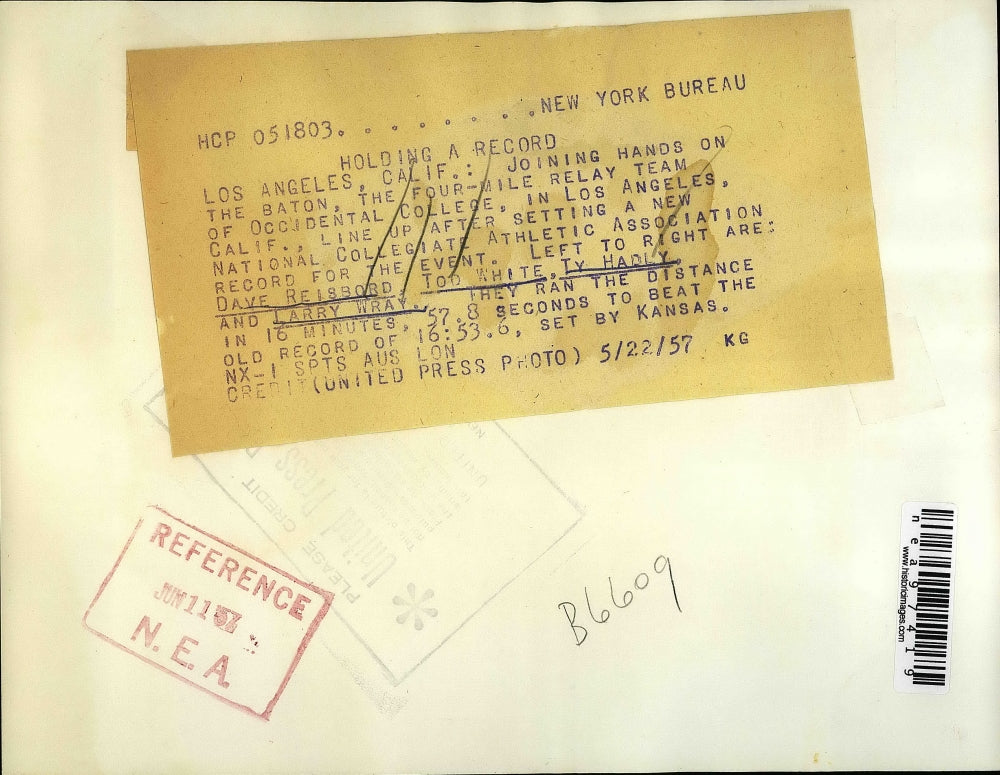 HCP 051803. . . . . . . . .NEW YORK BUREAU
HOLDING A RECORD
LOS ANGELES, CALIF.: JOINING HANDS ON
THE BATON, THE FOUR-MILE RELAY TEAM
OF OCCIDENTAL COLLEGE, IN LOS ANGELES,
CALIF., LINE UP AFTER SETTING A NEW
NATIONAL COLLEGIATE ATHLETIC ASSOCIATION
RECORD FOR THE EVENT. LEFT TO RIGHT ARE:
DAVE REISBORD, TOD WHITE, TY HADLY,
AND LARRY WRAY. THEY RAN THE DISTANCE
IN 16 MINUTES, 57.8 SECONDS TO BEAT THE
OLD RECORD OF 16:53.6, SET BY KANSAS.
NX-1 SPTS AUS LON
CREDIT (UNITED PRESS PHOTO) 5/22/57 KG
PLEASE CREDIT
United Press
REFERENCE
JUN 11 '57
N. E. A.
B6609
nea97419
www.historicimages.com